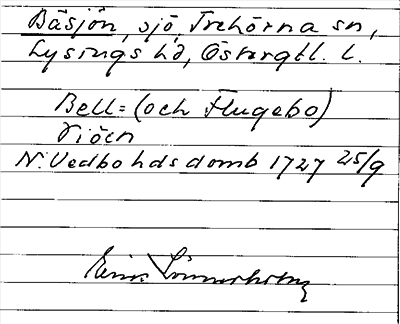 Bäsjön, sjö, Trehörna sn,
Lysings hd, Östergtl. l.
Bell= (och Flugebo)
siöen
N. Vedbo hds domb 1727 25/9